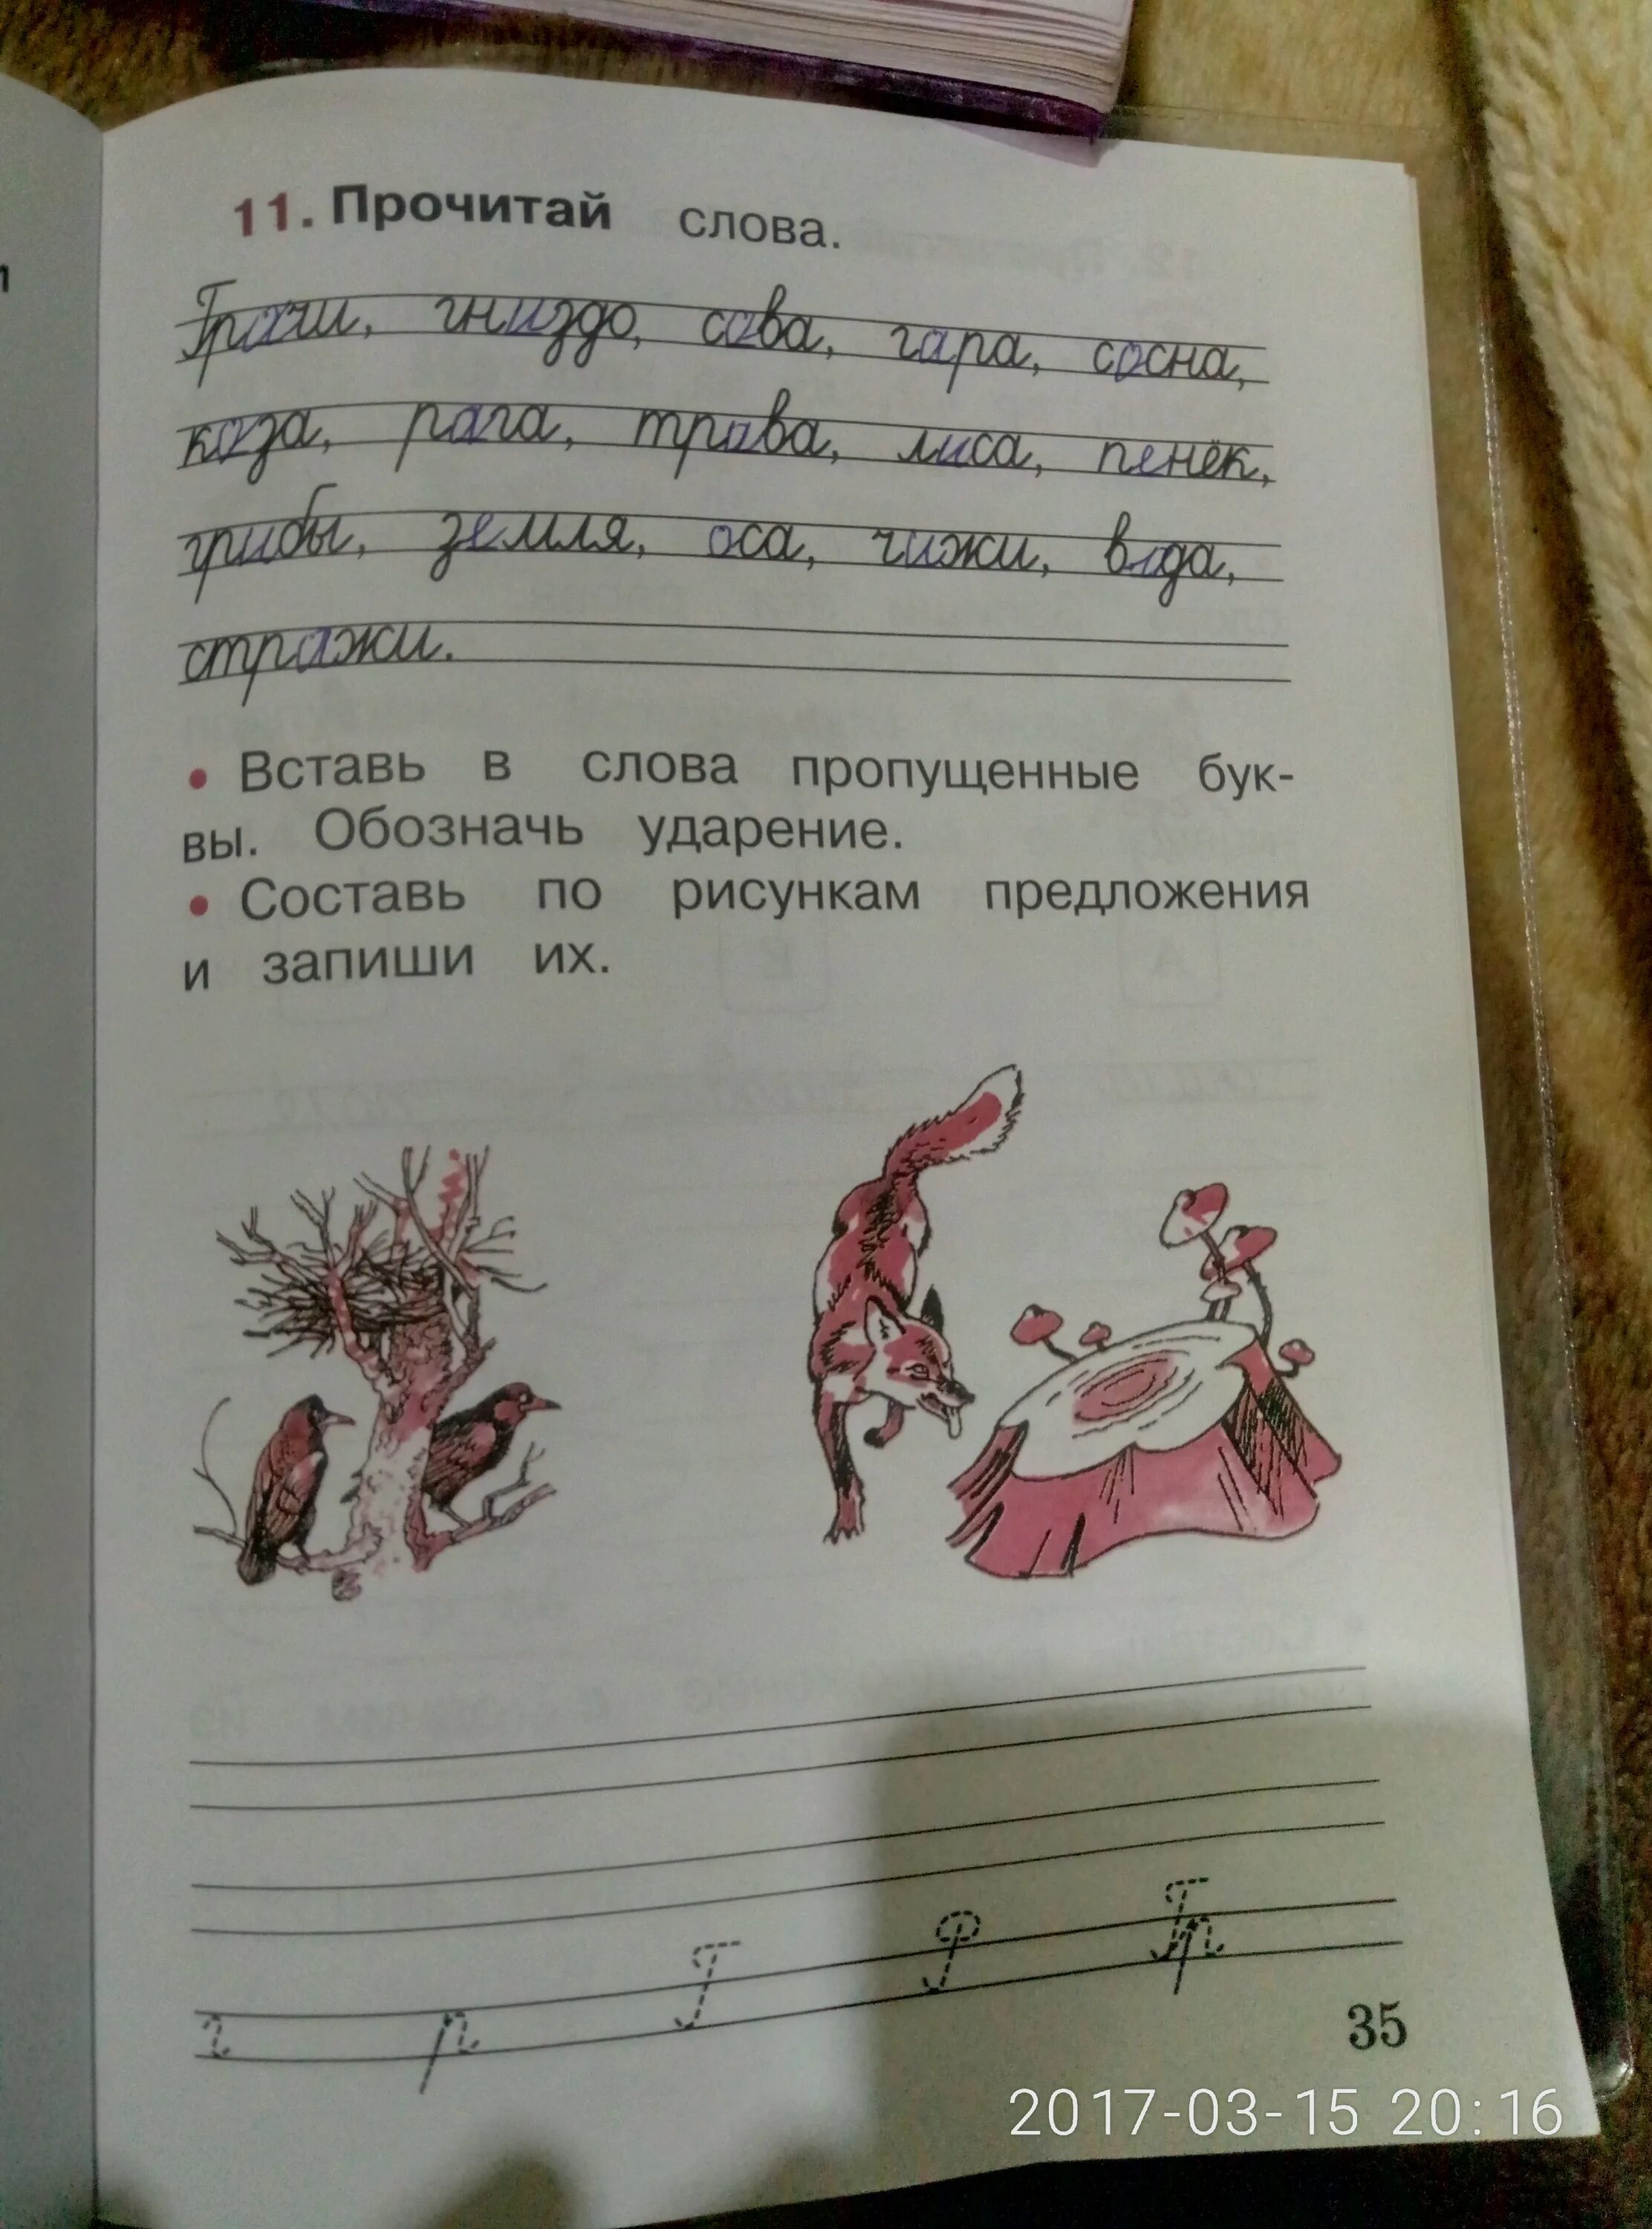 11. Прочитай слова.
Грачи, гниздо, сава, гара, сосна,
коза, рага, трава, лиса, пенёк,
грибы, земля, оса, чижи, вода,
стрижи.
• Вставь в слова пропущенные бук-
вы. Обозначь ударение.
• Составь по рисункам предложения
и запиши их.
г р Г Р Гр
35
2017-03-15 20:16